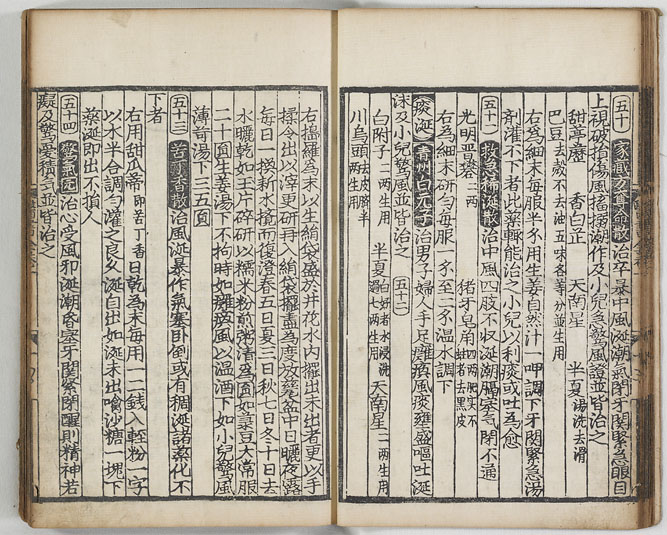 五十 家藏方奪命散 治卒暴中風涎潮氣閉牙關緊急眼目
上視破損傷風搐搦潮作及小兒急驚風證並皆治之
甜葶藶 香白芷 天南星 半夏湯洗去滑
巴豆去殼不去油五味各等分並生用
右爲細末每服半錢用生姜自然汁一呷調下牙關緊急湯
劑灌不下者此藥輙能治之小兒以利痰或吐爲愈
五十一 救急稀涎散 治中風四肢不收涎潮膈塞氣閉不通
光明晋礬一兩 猪牙皂角四兩肥實不蛀者去黑皮
右爲細末研勻每服一錢至二錢温水調下
痰涎 青州白丸子 治男子婦人手足癱瘓風痰壅盛嘔吐涎
沫及小兒驚風並皆治之 五十二
白附子二兩生用 半夏白好者水浸洗過七兩生用 天南星二兩生用
川烏頭去皮臍半兩生用
右擣羅爲末以生絹袋盛於井花水内擺出未出者更以手
揉令出以滓更研再入絹袋擺盡爲度放甆盆中日曬夜露
每日一換新水攪而復澄春五日夏三日秋七日冬十日去
水曬乾如玉片碎研以糯米粉煎粥清爲圓如菉豆大常服
二十圓生姜湯下不拘時如癱瘓風以温酒下如小兒驚風
薄荷湯下三五圓
五十三 苦丁香散 治風涎暴作氣塞卧倒或有稠涎諸藥化不
下者
右用甜瓜蔕即苦丁香日乾爲末每用一二錢入輕粉一字
以水半合調勻灌之良久涎自出如涎未出噙沙糖一塊下
藥涎即出不損人
五十四 驚氣圓 治心受風邪涎潮昏塞牙關緊閉醒則精神若
癡及驚憂積氣並皆治之